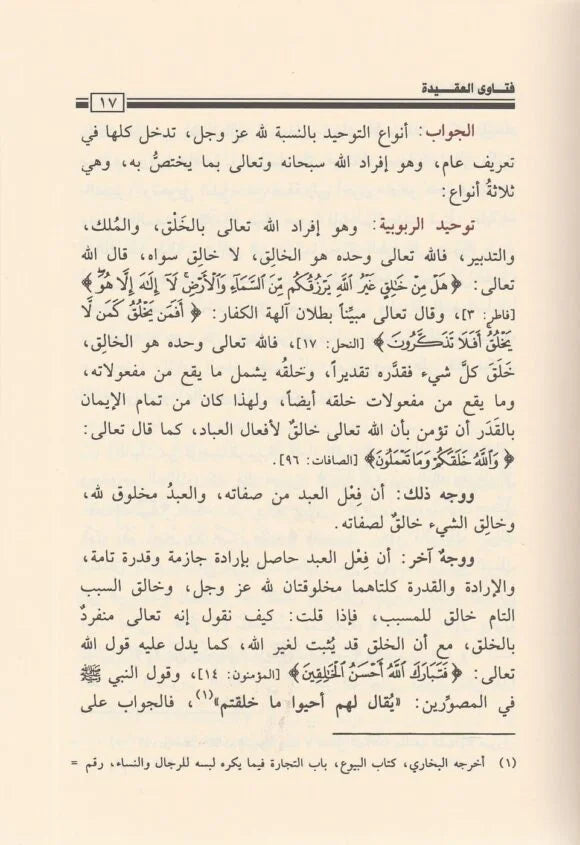 فتـاوى العقـيـدة
١٧
الجواب: أنواع التوحيد بالنسبة لله عز وجل، تدخل كلها في
تعريف عام، وهو إفراد الله سبحانه وتعالى بما يختصُّ به، وهي
ثلاثةُ أنواع:
توحيد الربوبية: وهو إفراد الله تعالى بالخَلْق، والمُلك،
والتدبير، فالله تعالى وحده هو الخالِق، لا خالِق سواه، قال الله
تعالى: ﴿هَلْ مِنْ خَٰلِقٍ غَيْرُ ٱللَّهِ يَرْزُقُكُم مِّنَ ٱلسَّمَآءِ وَٱلْأَرْضِۚ لَآ إِلَٰهَ إِلَّا هُوَۖ﴾
[فاطر: ٣]، وقال تعالى مبيِّناً بطلان آلهة الكفار: ﴿أَفَمَن يَخْلُقُ كَمَن لَّا
يَخْلُقُۗ أَفَلَا تَذَكَّرُونَ﴾ [النحل: ١٧]، فالله تعالى وحده هو الخالِق،
خَلَقَ كلَّ شيء فقدَّره تقديراً، وخلقُه يشمل ما يقع من مفعولاته،
وما يقع من مفعولات خلقه أيضاً، ولهذا كان من تمام الإيمان
بالقَدَر أن تؤمن بأن الله تعالى خالقٌ لأفعال العباد، كما قال تعالى:
﴿وَٱللَّهُ خَلَقَكُمْ وَمَا تَعْمَلُونَ﴾ [الصافات: ٩٦].
ووجه ذلك: أن فِعْل العبد من صفاته، والعبدُ مخلوق لله،
وخالِق الشيء خالقٌ لصفاته.
ووجهٌ آخر: أن فِعْل العبد حاصل بإرادة جازمة وقدرة تامة،
والإرادة والقدرة كلتاهما مخلوقتان لله عز وجل، وخالق السبب
التام خالق للمسبب، فإذا قلت: كيف نقول إنه تعالى منفردٌ
بالخلق، مع أن الخلق قد يُثبت لغير الله، كما يدل عليه قول الله
تعالى: ﴿فَتَبَارَكَ ٱللَّهُ أَحْسَنُ ٱلْخَٰلِقِينَ﴾ [المؤمنون: ١٤]، وقول النبي ﷺ
في المصوِّرين: «يُقال لهم أحيوا ما خلقتم»(١)، فالجواب على
(١) أخرجه البخاري، كتاب البيوع، باب التجارة فيما يكره لبسه للرجال والنساء، رقم =